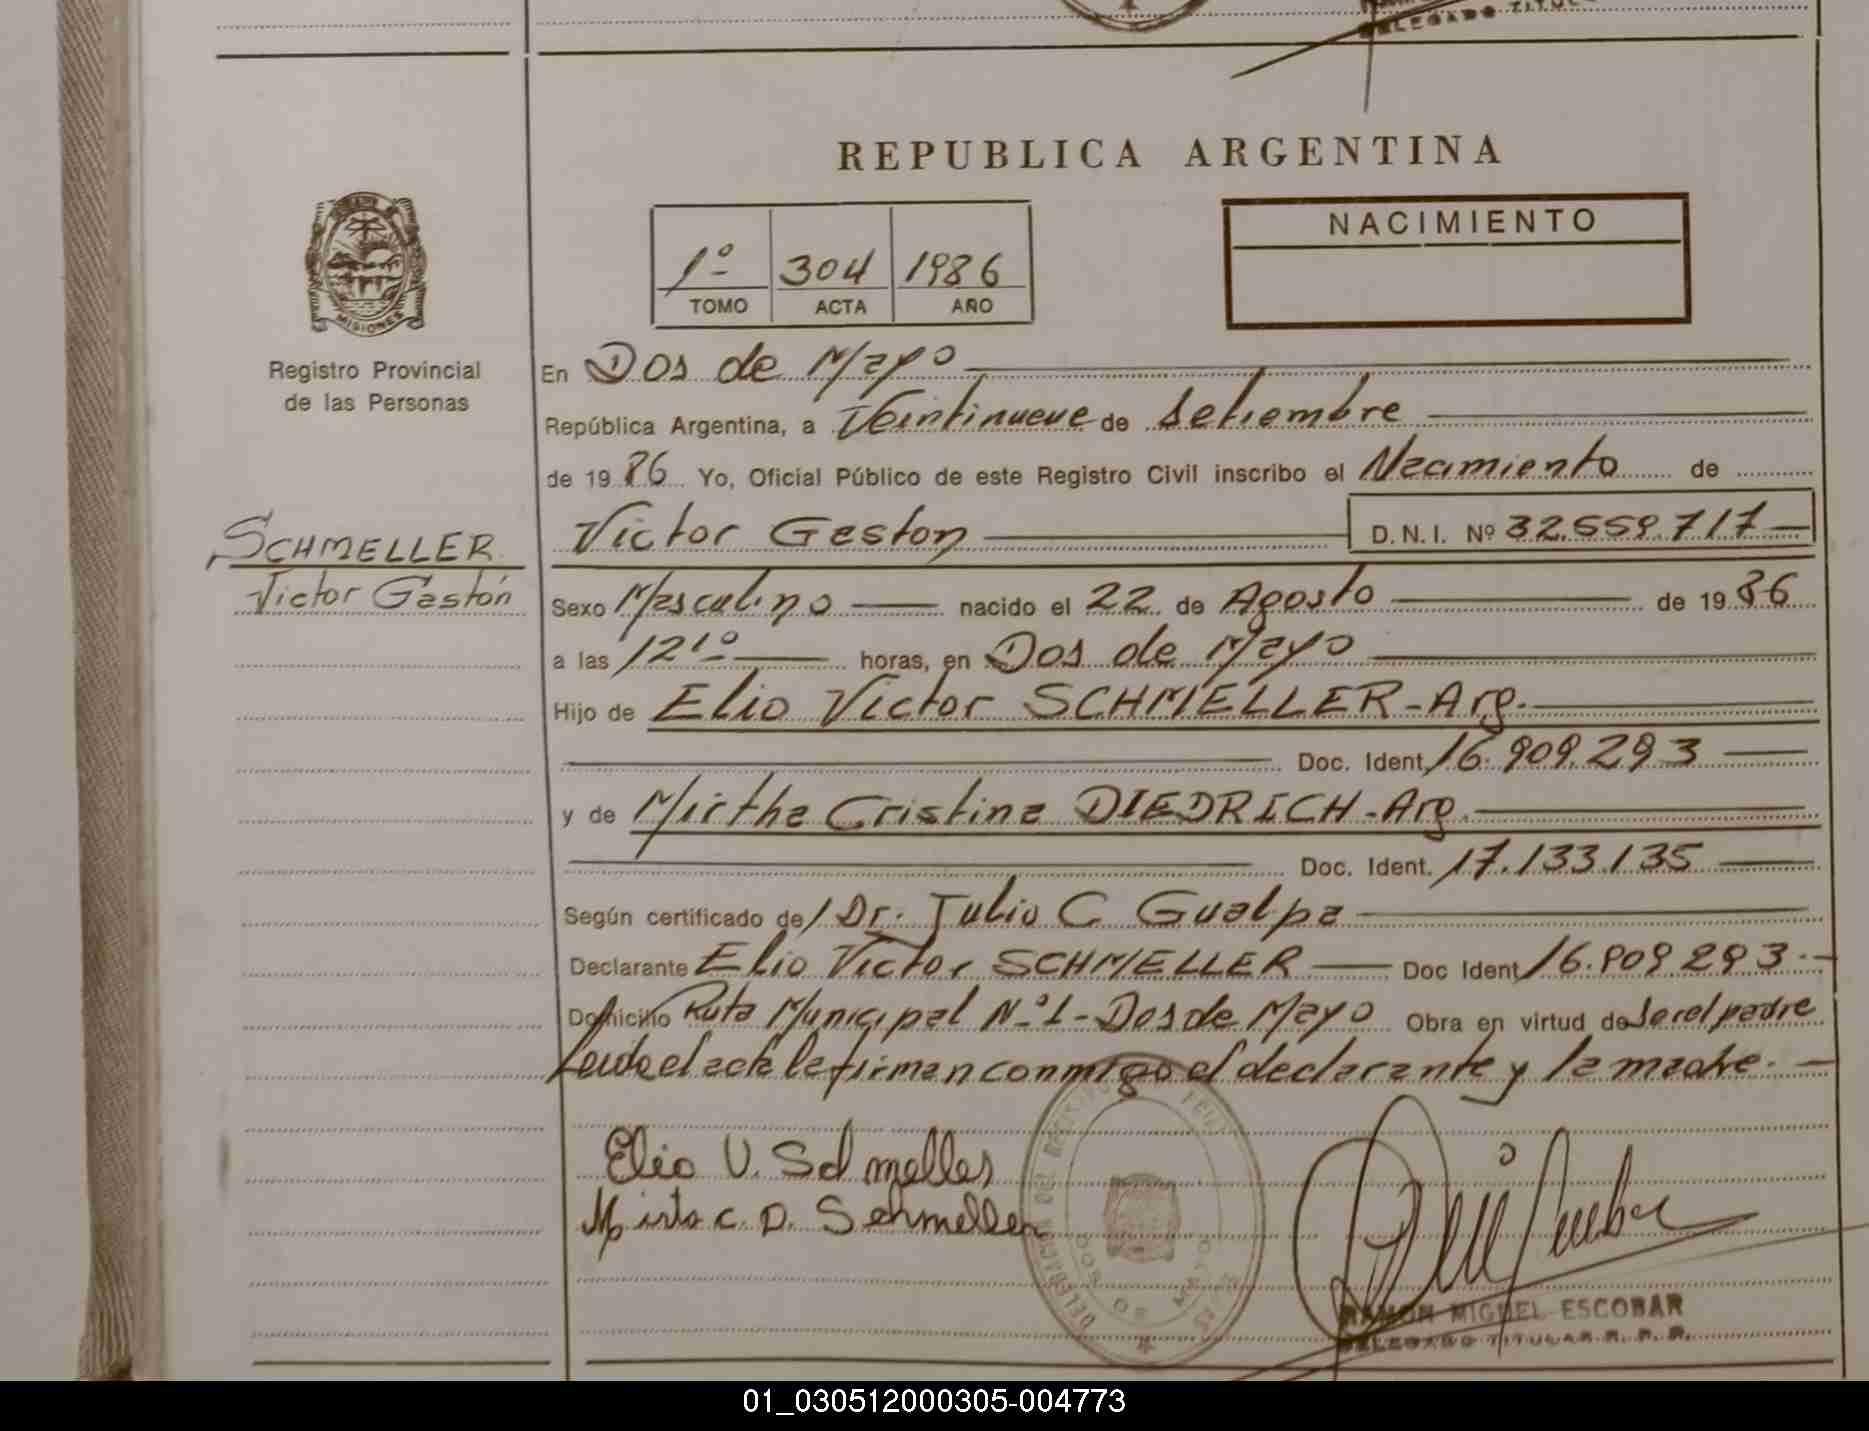 DELEGADO TITULAR
REPUBLICA ARGENTINA
NACIMIENTO
1º 304 1986
TOMO ACTA AÑO
MISIONES
Registro Provincial
de las Personas
En Dos de Mayo
República Argentina, a Veintinueve de Setiembre
de 1986 Yo, Oficial Público de este Registro Civil inscribo el Nacimiento de
SCHMELLER
Victor Gastón
Victor Gaston D.N.I. Nº 32.559.717
Sexo Masculino nacido el 22 de Agosto de 1986
a las 12 1º horas, en Dos de Mayo
Hijo de Elio Victor SCHMELLER-Arg.
Doc. Ident 16.909.293
y de Mirtha Cristina DIEDRICH-Arg.
Doc. Ident. 17.133.135
Según certificado de Dr. Julio C Gualpa
Declarante Elio Victor SCHMELLER Doc Ident 16.909.293
Domicilio Ruta Municipal Nº1-Dos de Mayo Obra en virtud de ser el padre
Leida el acta la firman conmigo el declarante y la madre.
Elio V. Schmeller
Mirta C. D. Schmeller
DOS DE MAYO
RAMON MIGUEL ESCOBAR
DELEGADO TITULAR R. P. P.
01_030512000305-004773